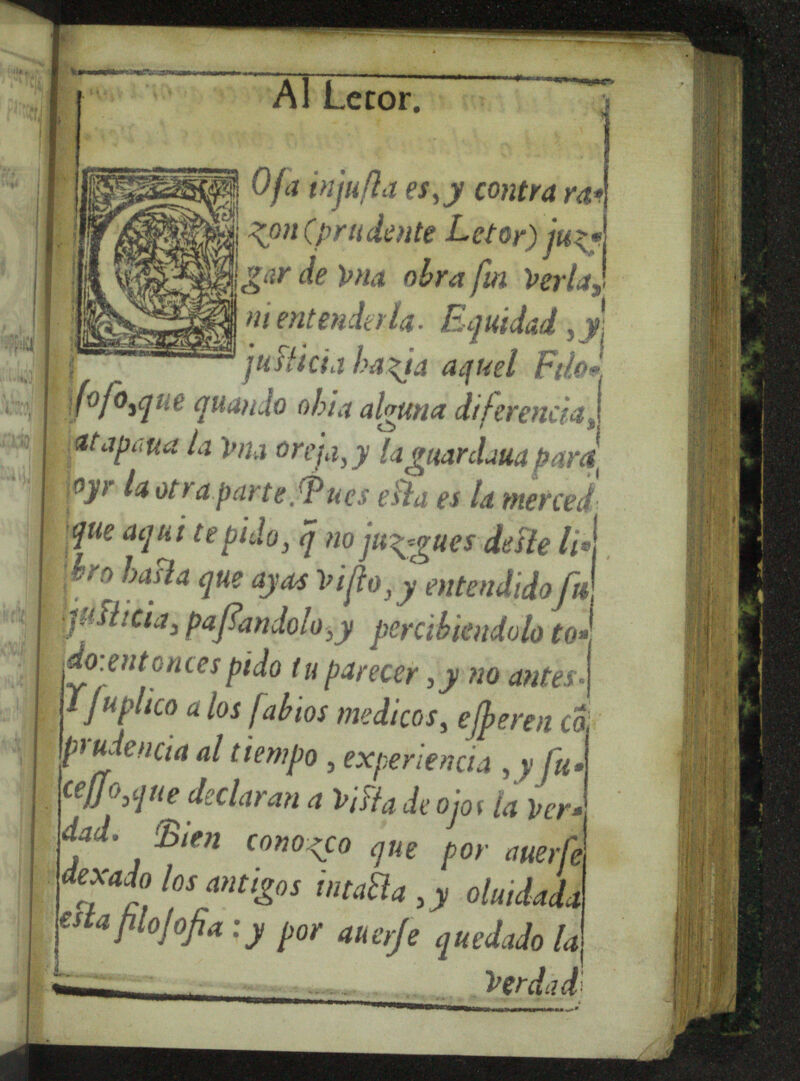 Al Letor.
COſa injuſta es, y contra ra-
zon (prudente Letor) juz-
gar de vna obra ſin verla,
ni entenderla. Equidad, y
juſticia hazia aquel Filo-
ſofo, que quando obia alguna diferencia,
atapaua la vna oreja, y la guardaua para
oyr la otra parte. Pues eſta es la merced
que aqui te pido, q̃ no juzgues deſte li-
bro haſta que ayas viſto, y entendido ſu
juſticia, paſſandolo, y percibiendolo to-
do: entonces pido tu parecer, y no antes.
Y ſuplico a los ſabios medicos, eſperen cõ
prudencia al tiempo, experiencia, y ſu-
ceſſo, que declaran a viſta de ojos la ver-
dad. Bien conozco que por auerſe
dexado los antigos intacta, y oluidada
eſta filoſofia: y por auerſe quedado la
verdad